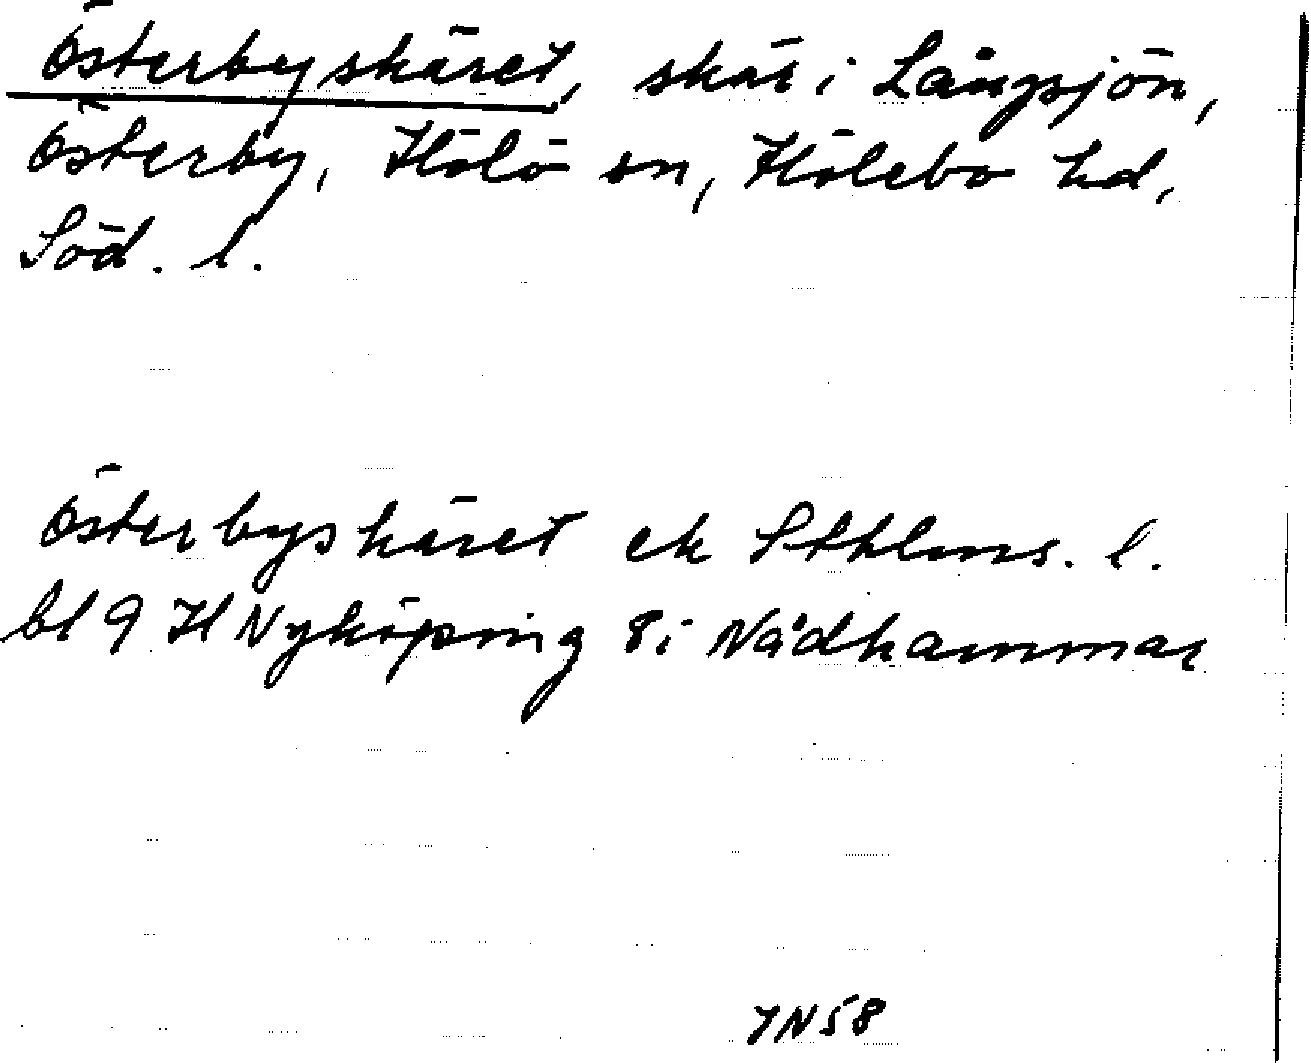 Österbyskäret, skär i Långsjön,
Österby, Hölö sn, Hölebo hd,
Söd. l.
Österbyskäret ek Sthlms. l.
bl 9 H Nyköping 8i Nådhammar
YN58